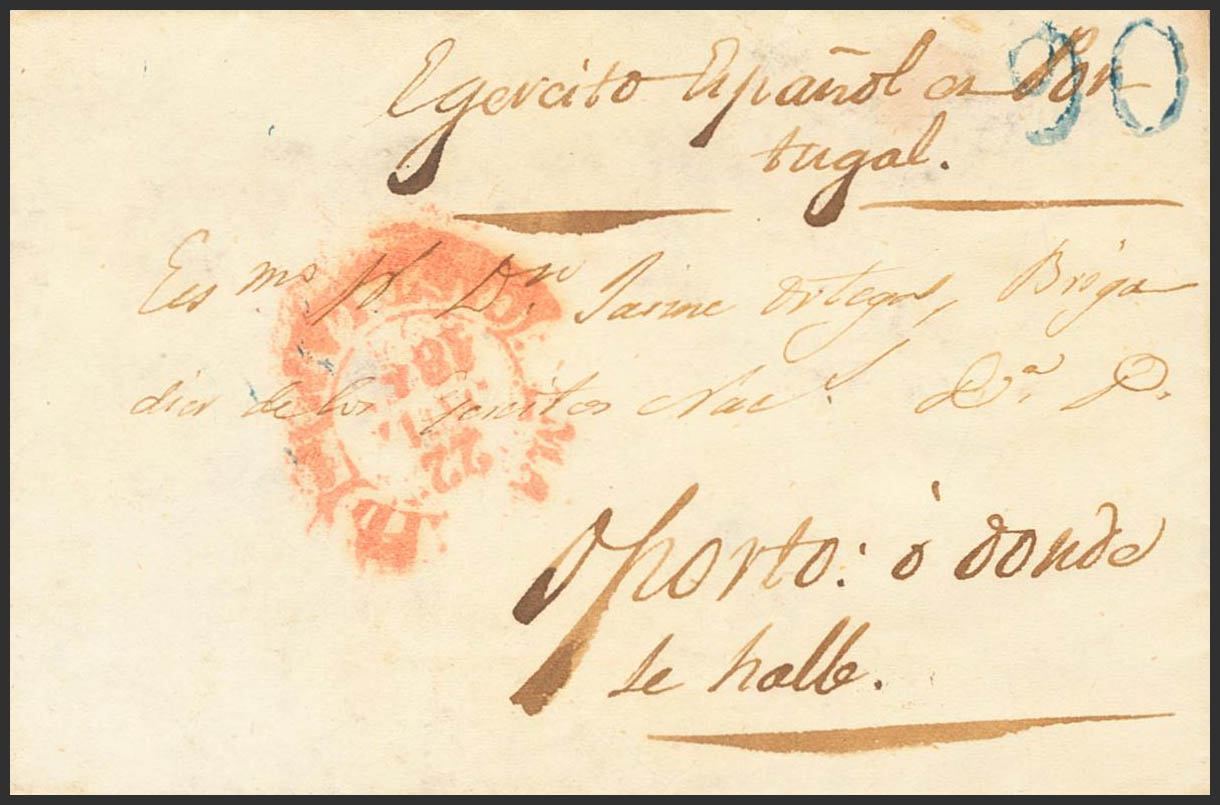 90
Egercito Español en Por-
tugal.
Ecs.mo Sr. D.n Jaime Ortega, Briga-
dier de los Egercitos Nac.s &.a &.
Oporto: ó donde
se halle.
22